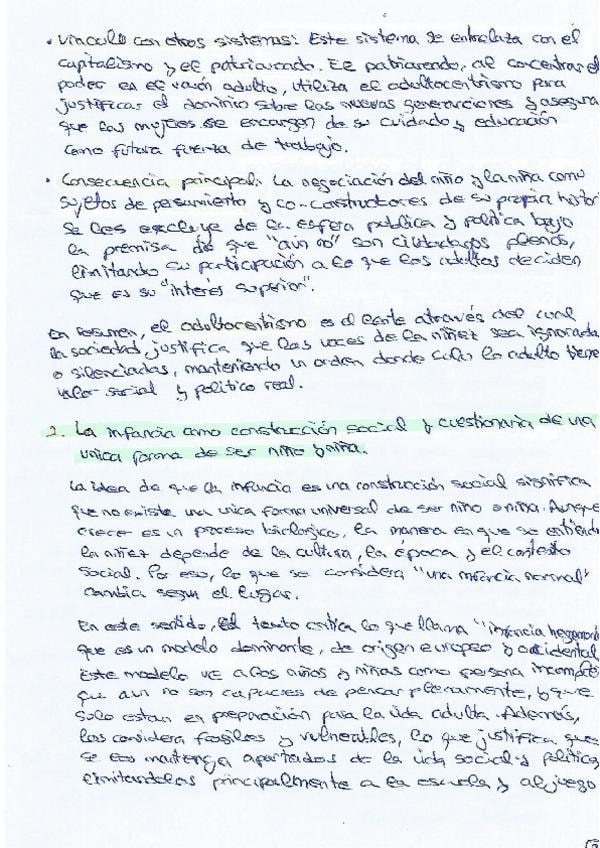 • Vínculo con otros sistemas: Este sistema se entrelaza con el
capitalismo y el patriarcado. El patriarcado, al concentrar el
poder en el varón adulto, utiliza el adultocentrismo para
justificar el dominio sobre las nuevas generaciones y asegura
que las mujeres se encargen de su cuidado y educación
como futura fuerza de trabajo.
• Consecuencia principal: La negociación del niño y la niña como
sujetos de pensamiento y co-constructores de su propia histori
Se les excluye de la esfera publica y politica bajo
la premisa de que "aún no" son ciudadanos plenos,
limitando su participación a lo que los adultos deciden
que es su "interés superior".
En resumen, el adultocentrismo es el lente através del cual
la sociedad justifica que las voces de la niñez sea ignorada
o silenciadas, manteniendo un orden donde solo lo adulto tiene
valor social y politico real.
2. La infancia como construcción social y cuestionaria de una
unica forma de ser niño y niña.
La idea de que la infancia es una construcción social significa
que no existe una unica forma universal de ser niño o niña. Aunque
crecer es un proceso biologico, la manera en que se entiende
la niñez depende de la cultura, la época y el contexto
social. Por eso, lo que se considera "una infancia normal"
cambia segun el lugar.
En este sentido, el texto critica lo que llama "infancia hegemoni
que es un modelo dominante, de origen europeo y occidental
Este modelo ve a los niños y niñas como persona incomplet
que aun no son capaces de pensar plenamente, y que
solo estan en preparación para la vida adulta. Además,
los considera fragiles y vulnerables, lo que justifica que
se los mantenga apartados de la vida social y politica,
limitandolos principalmente a la escuela y al juego